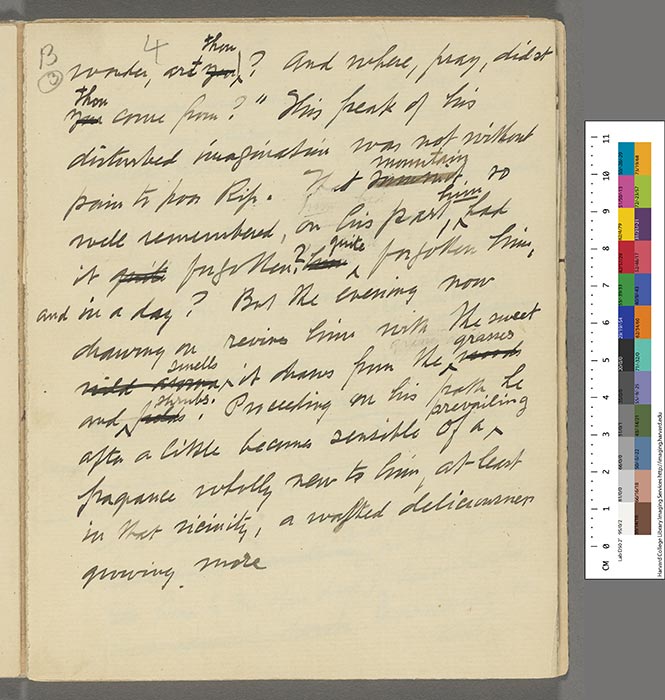 B 4
3
wonder, art thou? And where, pray, didst
thou come from?" This freak of his
disturbed imagination was not without
pain to poor Rip. That mountain so
well remembered, on his part, him had
it quite forgotten? quite forgotten him,
and in a day? But the evening now
drawing on revives him with the sweet
smells it draws from the grasses
and shrubs. Proceeding on his path he
after a little becomes sensible of a prevailing
fragrance wholly new to him, at least
in that vicinity, a wafted deliciousness
growing more
CM 0 1 2 3 4 5 6 7 8 9 10 11
Harvard College Library Imaging Services http://imaging.harvard.edu